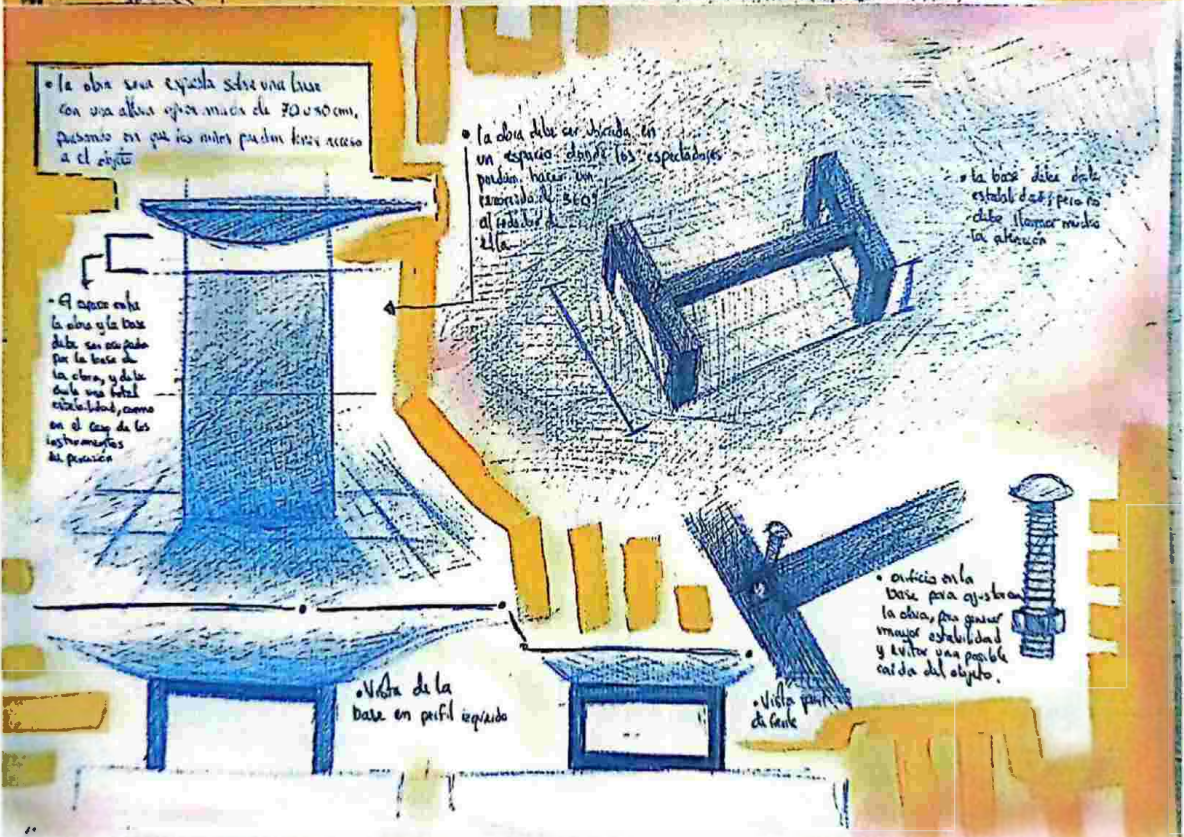 • la obra sera expuesta sobre una base
con una altura aproximada de 70 u 80 cm,
pensando en que los niños puedan tener acceso
a el objeto
• la obra debe ser ubicada en
un espacio donde los espectadores
puedan hacer un
recorrido de 360°
al rededor de
ella
• la base debe darle
estabilidad, pero no
debe llamar mucho
la atención
• El espacio entre
la obra y la base
debe ser ocupado
por la base de
la obra, y debe
darle una total
estabilidad, como
en el caso de los
instrumentos
de percusión
• orificio en la
base para ajustar
la obra, para generar
mayor estabilidad
y evitar una posible
caida del objeto.
• Vista de la
base en perfil izquierdo
• Vista
de frente